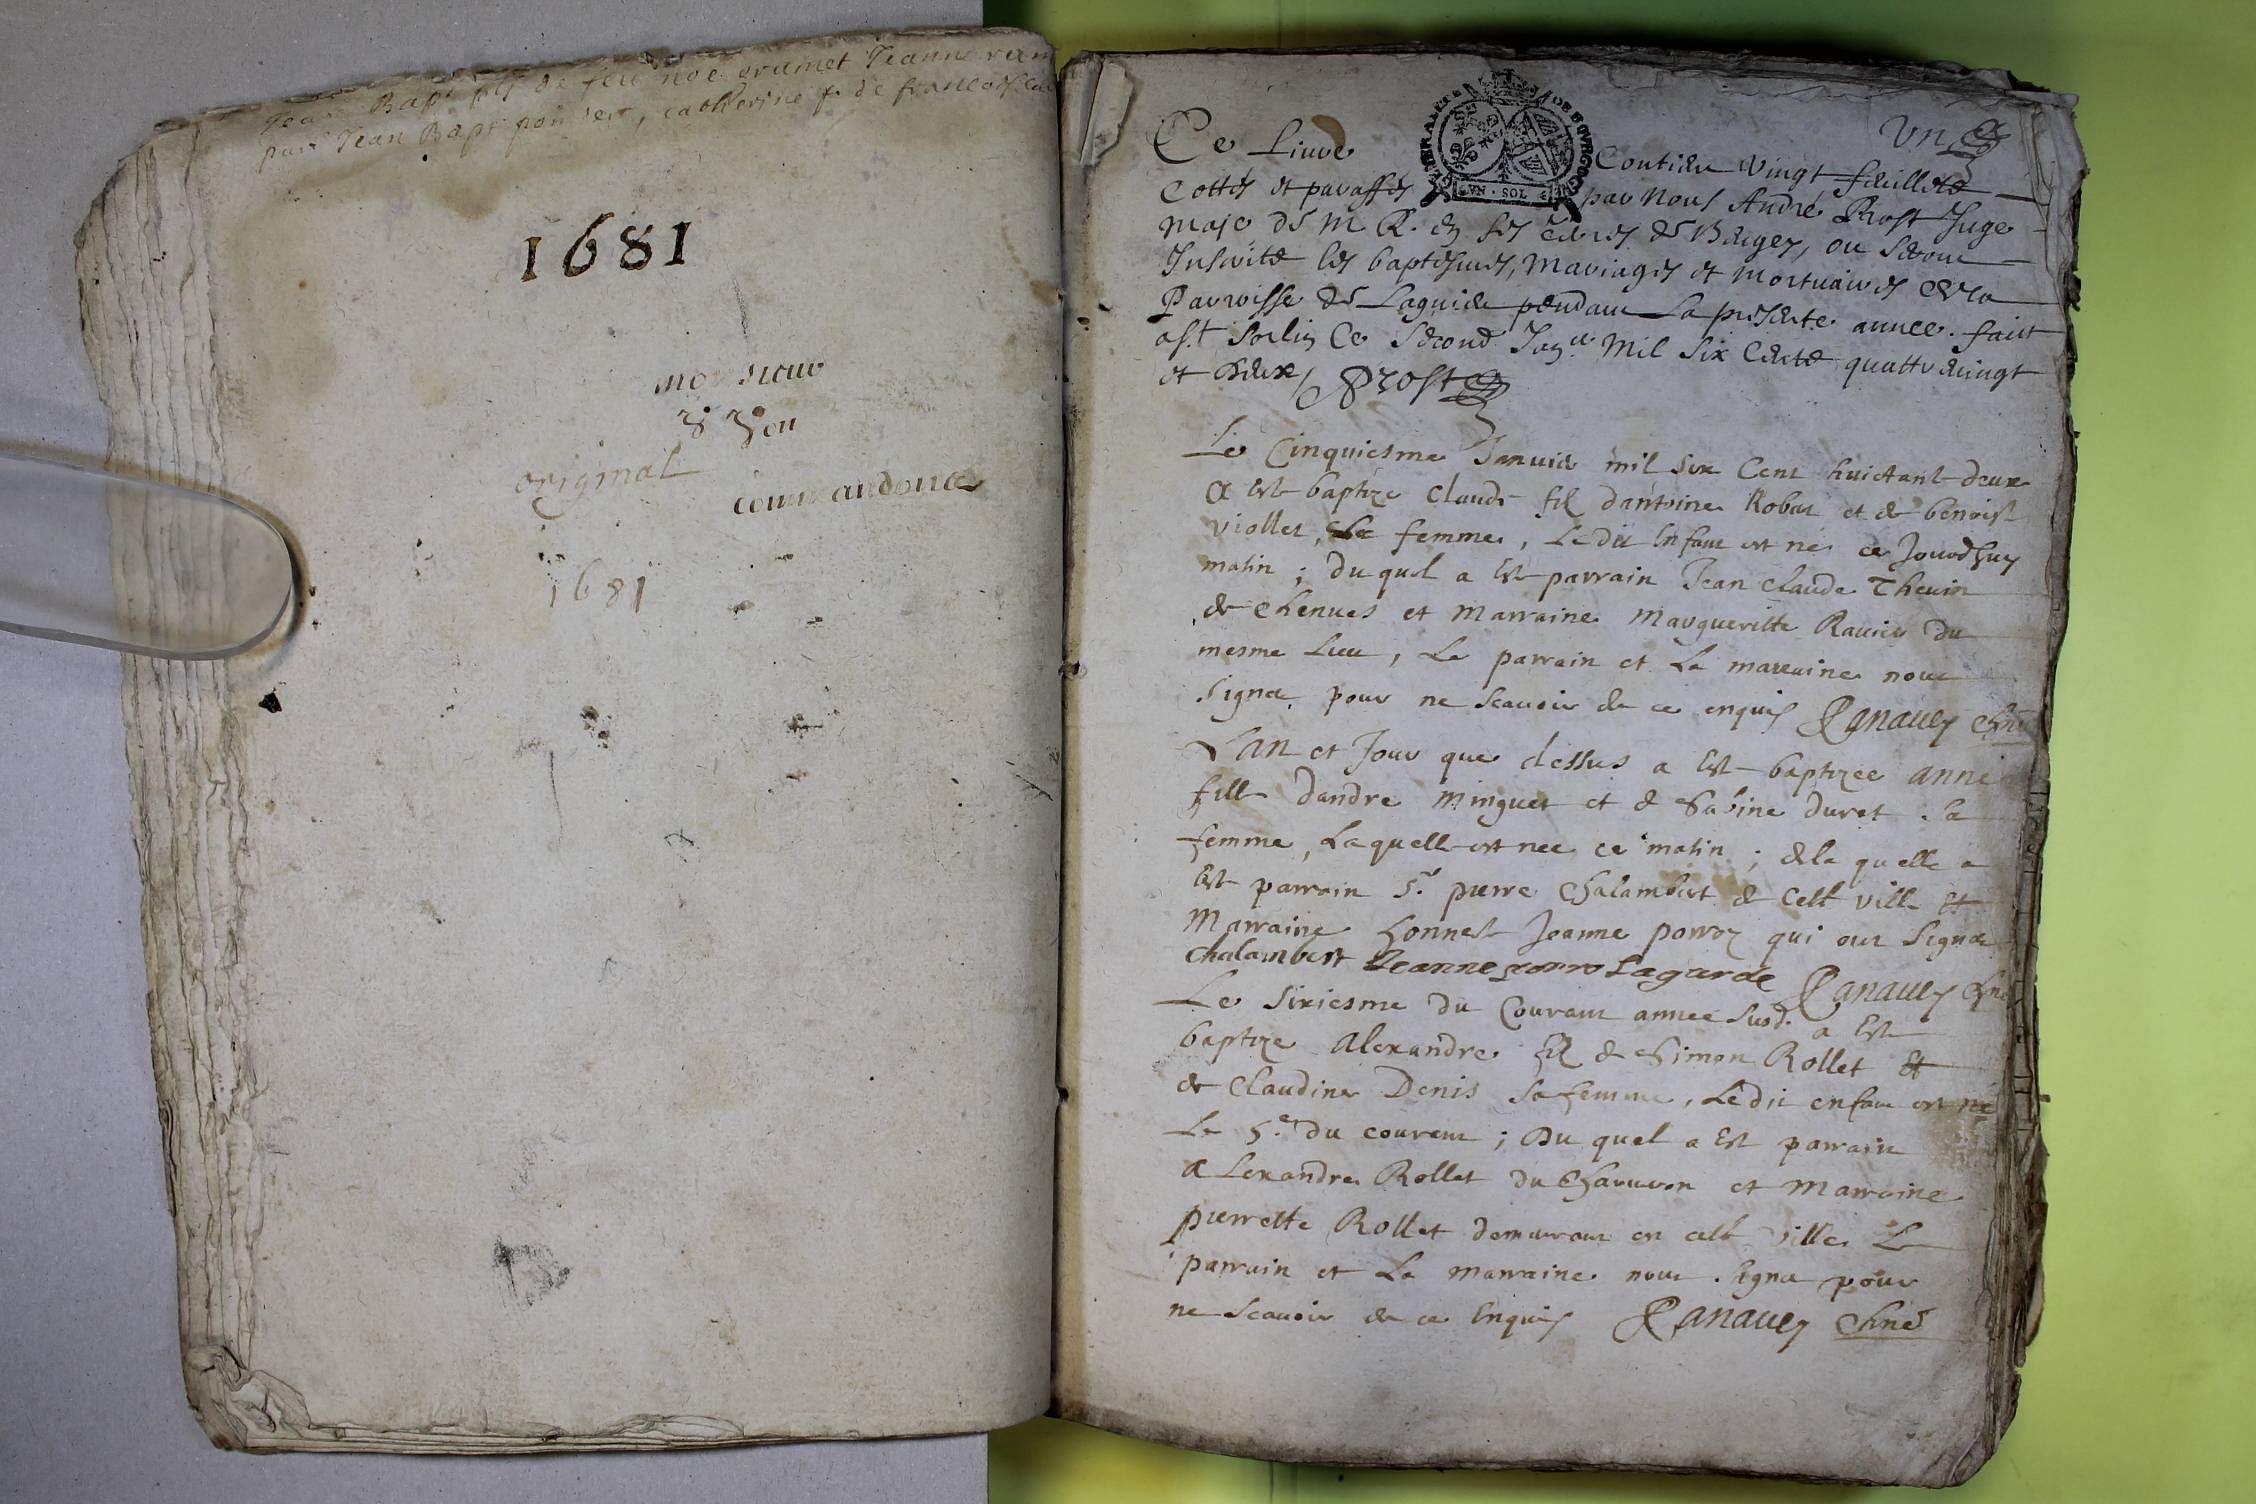 Jean Bapt fils de feu noe gramet Jeanne
par Jean Bapt catherine f. de francois
1681
monsieur
original
commandons
1681
Un
Ce Liure Contient Vingt feuillets
GENERALITE DE BOVRGOGNE
VN · SOL
Cottés et paraffés par Nous André Prost Juge
maje de en ses terres de Bugey, ou seront
Inscrits les baptesmes, Mariages et mortuaires de la
Parroisse de Lagnieu pendant La presente annee. fait
a St Sorlin Ce second Jan.er Mil six Cents quattrevingt
et deux / Prost
Le Cinquiesme Januier mil six Cent huictant deux
a Esté baptize Claude filz dantoine Robat et de benoiste
viollet, sa femme, Ledit Enfant est né ce Jourdhuy
matin ; duquel a Esté parrain Jean Claude Theuin
de Chenues et Marraine Margueritte Rauier du
mesme Lieu, Le parrain et La marraine nont
signé, pour ne scauoir de ce enquis Panauey
Lan et Jour que dessus a Esté baptizee anne
fille dandre Minguet et de Sabine duret sa
femme, Laquelle est nee ce matin ; de laquelle a
Esté parrain Sr. pierre Chalambert de Cette ville Et
Marraine honneste Jeanne porroz qui ont Signé
Chalambert Jeanne porro Lagarde Panauey
Le Sixiesme du Courant annee susd. a Esté
baptize Alexandre filz de Simon Rollet Et
de Claudine Denis sa femme, Ledit enfant est né
Le 5.e du courant ; Du quel a Esté parrain
Alexandre Rollet du Charueron et Marraine
pierrette Rollet demeurant en cette ville. Le
parrain et La marraine nont signé pour
ne scauoir de ce Enquis Panauey